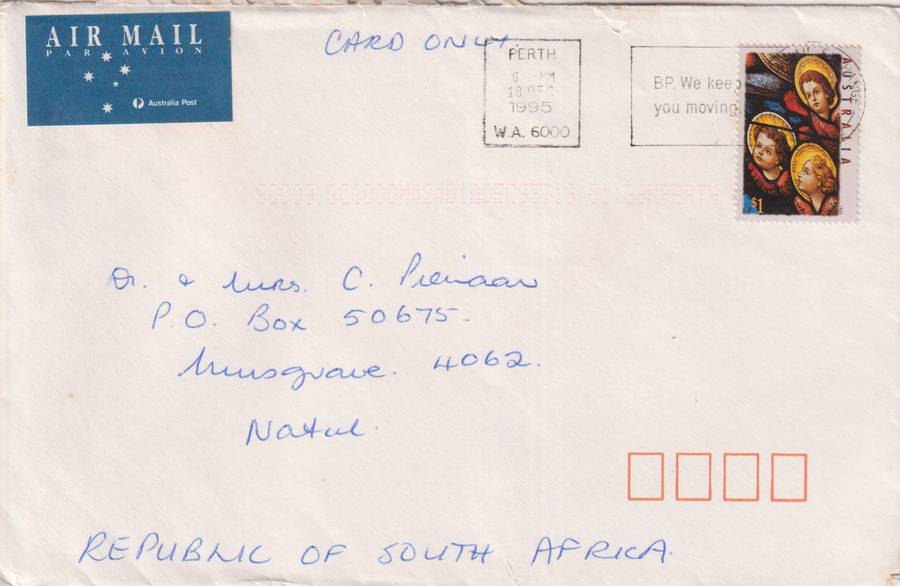 AIR MAIL
PAR AVION
Australia Post
CARD ONLY.
PERTH
6 - PM
18 DEC
1995
W.A. 6000
BP. We keep
you moving
AUSTRALIA
$1
Dr. & Mrs. C. Pienaar
P.O. Box 50675-
Musgrave. 4062.
Natal.
REPUBLIC OF SOUTH AFRICA.